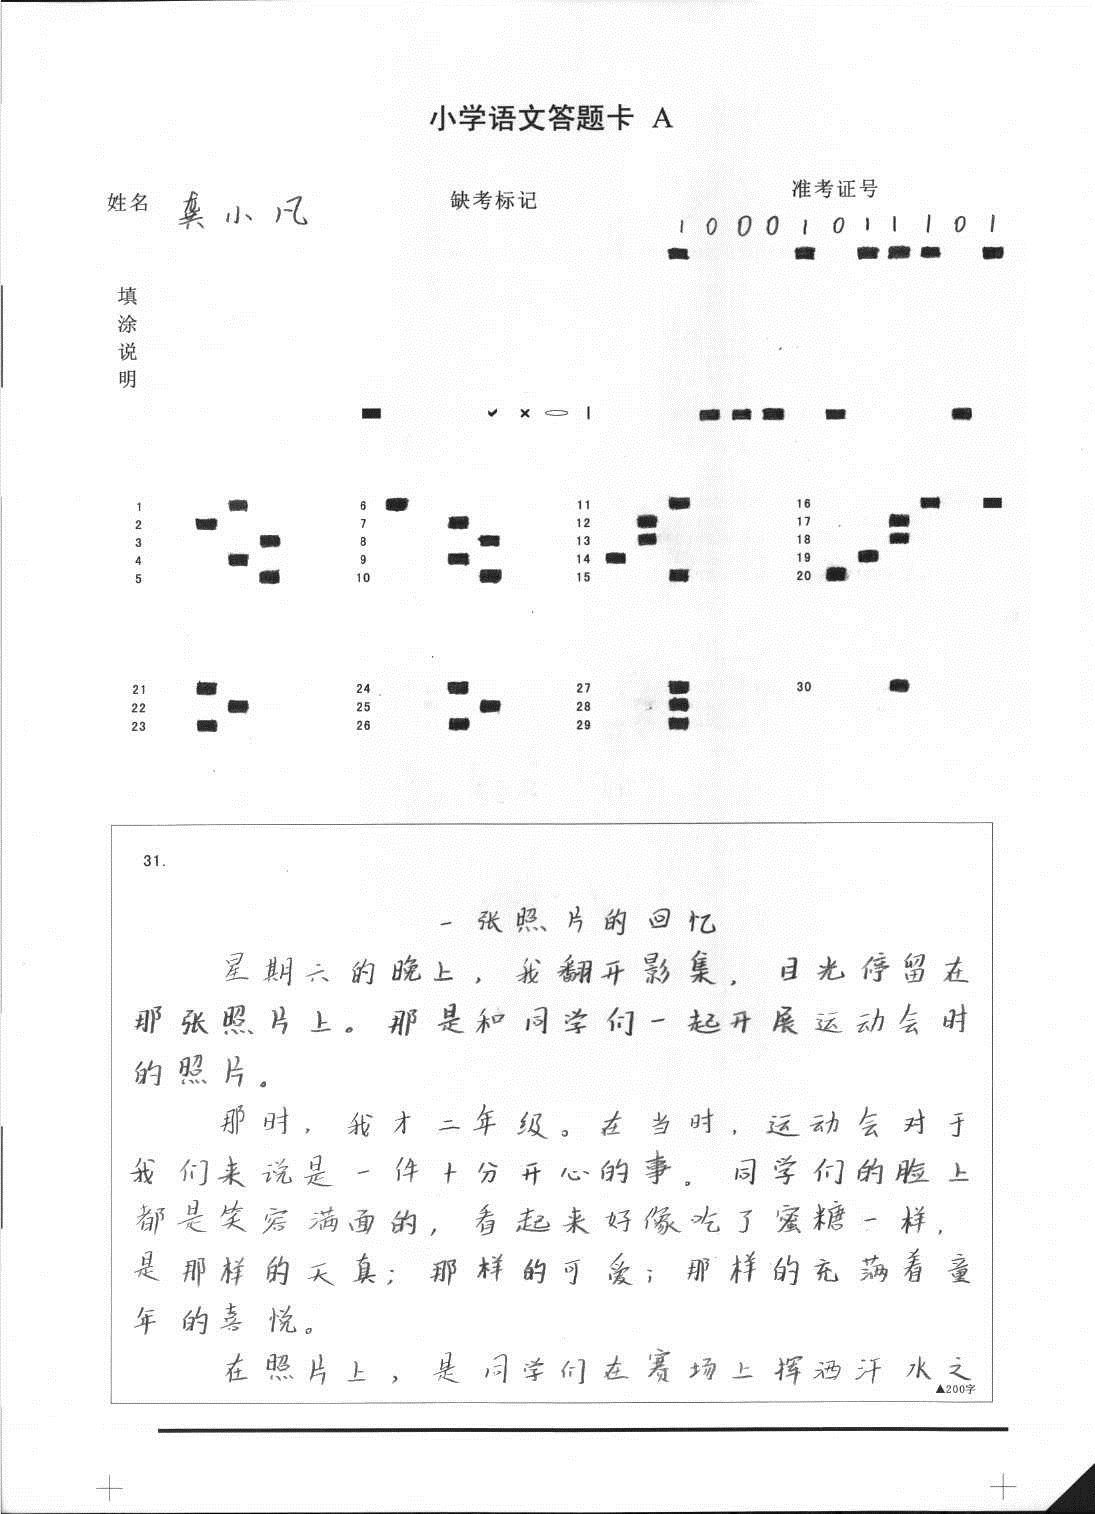 小学语文答题卡 A
姓名 龚小凡 缺考标记 准考证号
1 0 0 0 1 0 1 1 1 0 1
填
涂
说
明
1 6 11 16
2 7 12 17
3 8 13 18
4 9 14 19
5 10 15 20
21 24 27 30
22 25 28
23 26 29
31.
一张照片的回忆
星期六的晚上，我翻开影集，目光停留在
那张照片上。那是和同学们一起开展运动会时
的照片。
那时，我才二年级。在当时，运动会对于
我们来说是一件十分开心的事。同学们的脸上
都是笑容满面的，看起来好像吃了蜜糖一样，
是那样的天真；那样的可爱；那样的充满着童
年的喜悦。
在照片上，是同学们在赛场上挥洒汗水之
▲200字